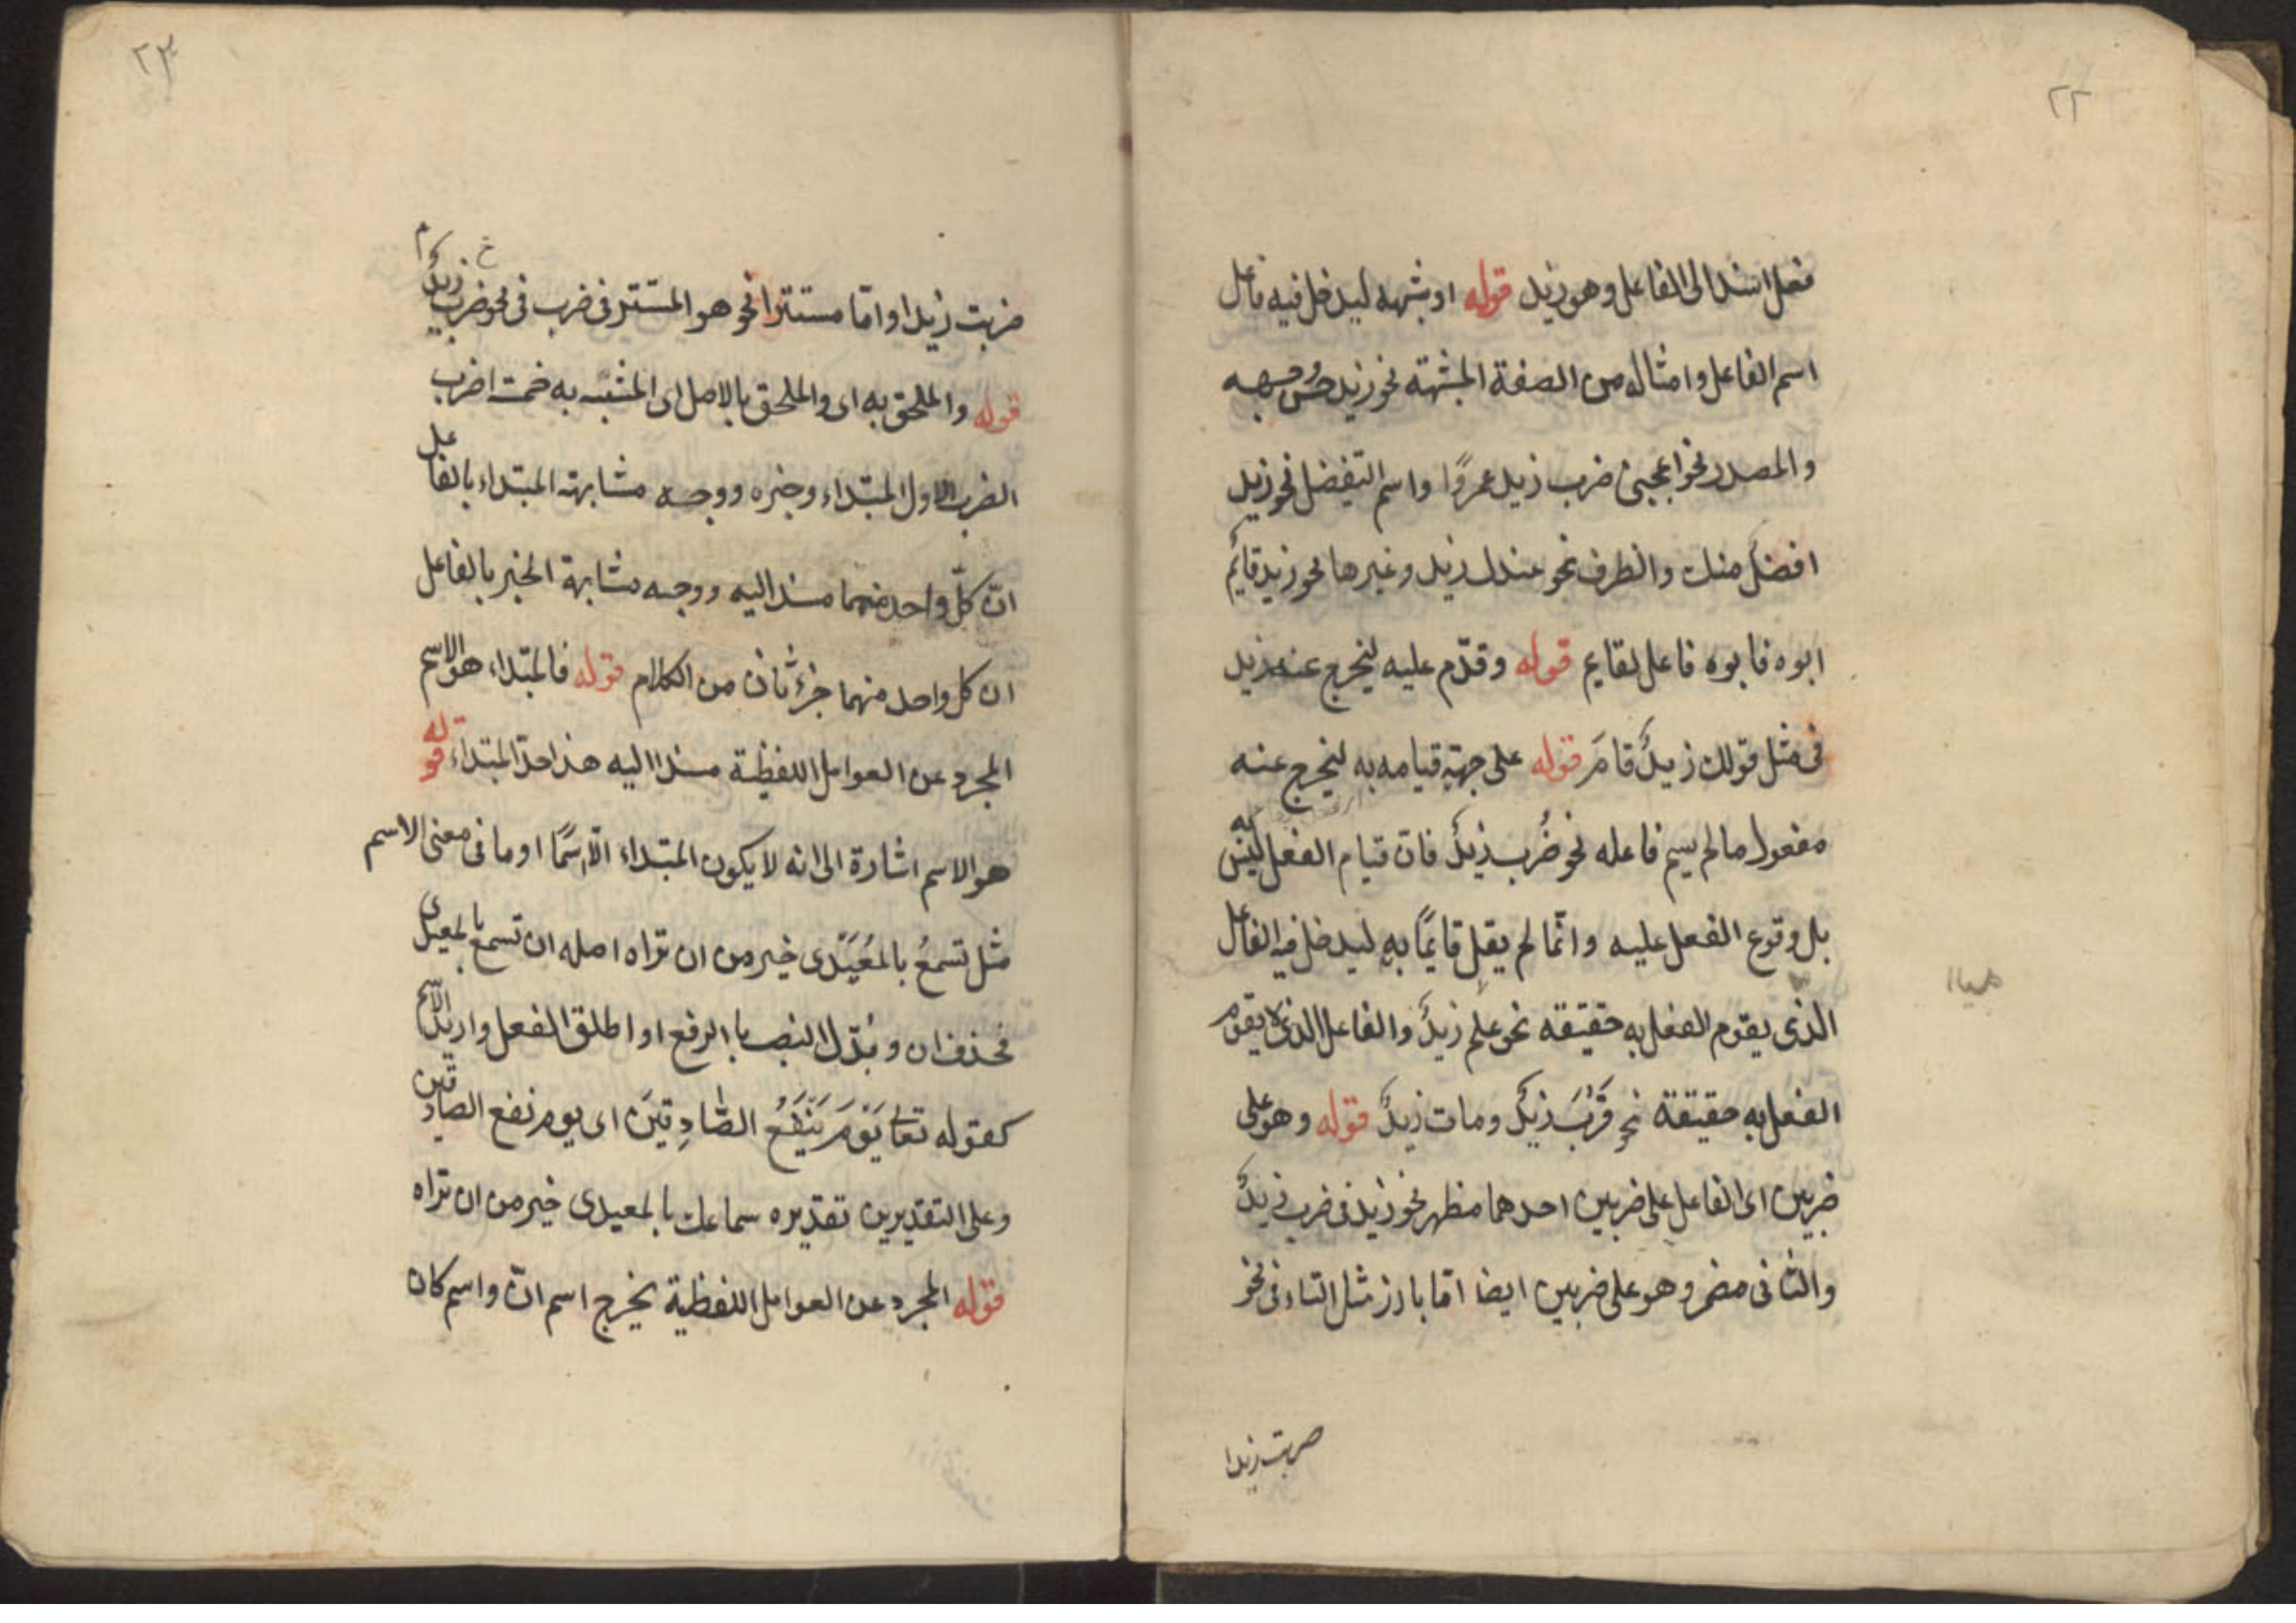 ٢٢
فعل اسند الى الفاعل وهو زيد قوله او شبهه ليدخل فيه فاعل
اسم الفاعل وامثاله من الصفة المشبهة نحو زيد حسن وجهه
والمصدر نحو اعجبنى ضرب زيد عمروًا واسم التفضيل نحو زيد
افضل منك والظرف نحو عندك زيد وغيرها نحو زيد قائم
ابوه فابوه فاعل لقايم قوله وقدّم عليه ليخرج عنه زيد
فى مثل قولك زيدٌ قامَ قوله على جهة قيامه به ليخرج عنه
مفعول ما لم يسم فاعله نحو ضُرب زيدٌ فانّ قيام الفعل ليس به
بل وقوع الفعل عليه وانّما لم يقل قايمًا به ليدخل فيه الفاعل
الذى يقوم الفعل به حقيقه نحو علم زيدٌ والفاعل الذى لا يقوم
الفعل به حقيقة نحو قَرُبَ زيدٌ ومات زيدٌ قوله وهو على
ضربين اى الفاعل على ضربين احدهما مظهر نحو زيد فى ضرب زيدٌ
والثانى مضمر وهو على ضربين ايضا امّا بارز مثل التاء فى نحو
ضربت زيدا
٢٣
ضربت زيدا او امّا مستترا نحو هو المستتر فى ضرب فى نحو زيدٌ ضرب
قوله والملحق به اى والملحق بالاصل اى المشبّه به خمسة اضرب
الضرب الاول المبتداء وخبره ووجه مشابهة المبتداء بالفاعل
انّ كلّ واحد منهما مسند اليه ووجه مشابهة الخبر بالفاعل
ان كل واحد منهما جزءٌ ثان من الكلام قوله فالمبتداء هو الاسم
المجرد عن العوامل اللفظية مسندا اليه هذا حدّ المبتداء قوله
هو الاسم اشارة الى انه لا يكون المبتداء الّا اسمًا او ما فى معنى الاسم
مثل تسمعُ بالمُعَيدى خير من ان تراه اصله ان تسمع بالمعيدى
فحذف ان وبُدّل النصب بالرفع او اطلق الفعل واريد الاسم
كقوله تعا يَوْمَ يَنْفَعُ الصَّادِقينَ اى يوم نفع الصادقين
وعلى التقديرين تقديره سماعك بالمعيدى خير من ان تراه
قوله المجرد عن العوامل اللفظية يخرج اسم انّ واسم كان